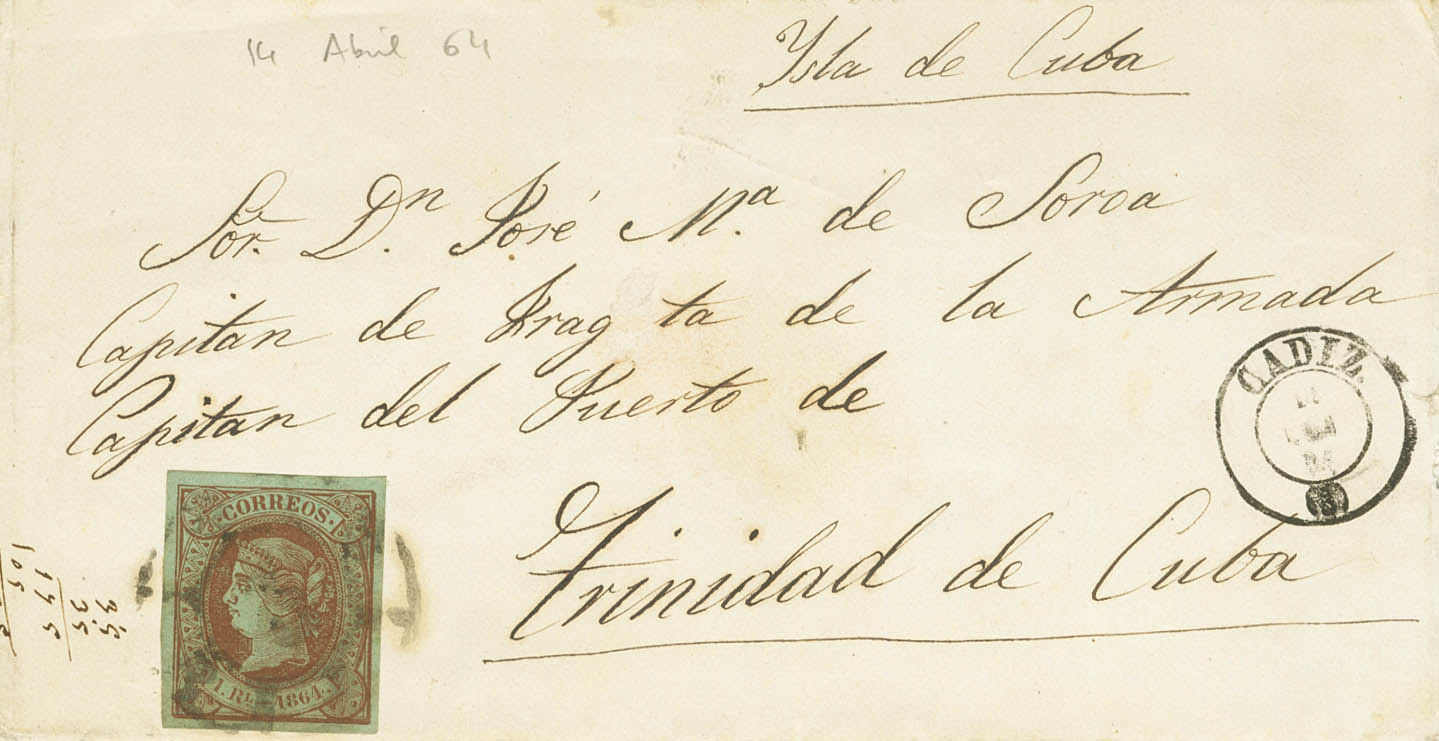 14 Abril 64
Ysla de Cuba
Sor. Dn. José Mª. de Soroa
Capitan de Frag ta de la Armada
Capitan del Puerto de
Trinidad de Cuba
CADIZ.
CORREOS
1. Rl. 1864.
35
35
175
105